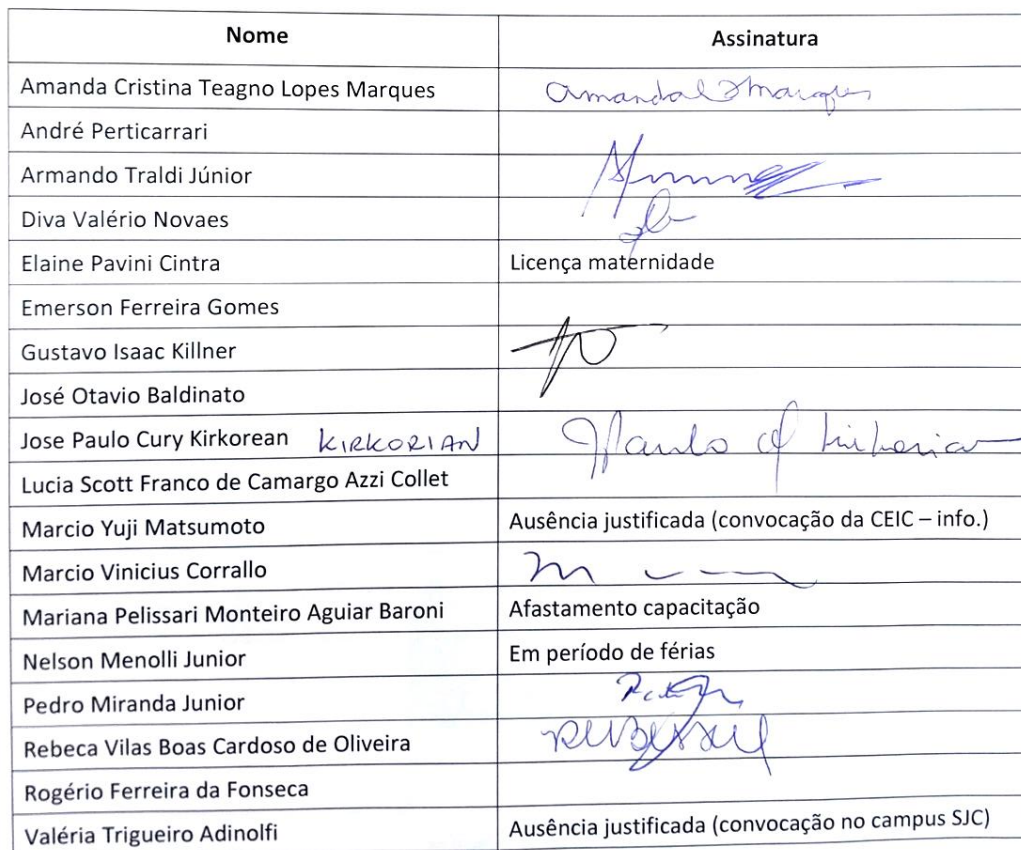 Nome Assinatura
Amanda Cristina Teagno Lopes Marques Amanda L Marques
André Perticarrari
Armando Traldi Júnior
Diva Valério Novaes
Elaine Pavini Cintra Licença maternidade
Emerson Ferreira Gomes
Gustavo Isaac Killner
José Otavio Baldinato
Jose Paulo Cury Kirkorean KIRKORIAN
Lucia Scott Franco de Camargo Azzi Collet
Marcio Yuji Matsumoto Ausência justificada (convocação da CEIC – info.)
Marcio Vinicius Corrallo
Mariana Pelissari Monteiro Aguiar Baroni Afastamento capacitação
Nelson Menolli Junior Em período de férias
Pedro Miranda Junior
Rebeca Vilas Boas Cardoso de Oliveira
Rogério Ferreira da Fonseca
Valéria Trigueiro Adinolfi Ausência justificada (convocação no campus SJC)